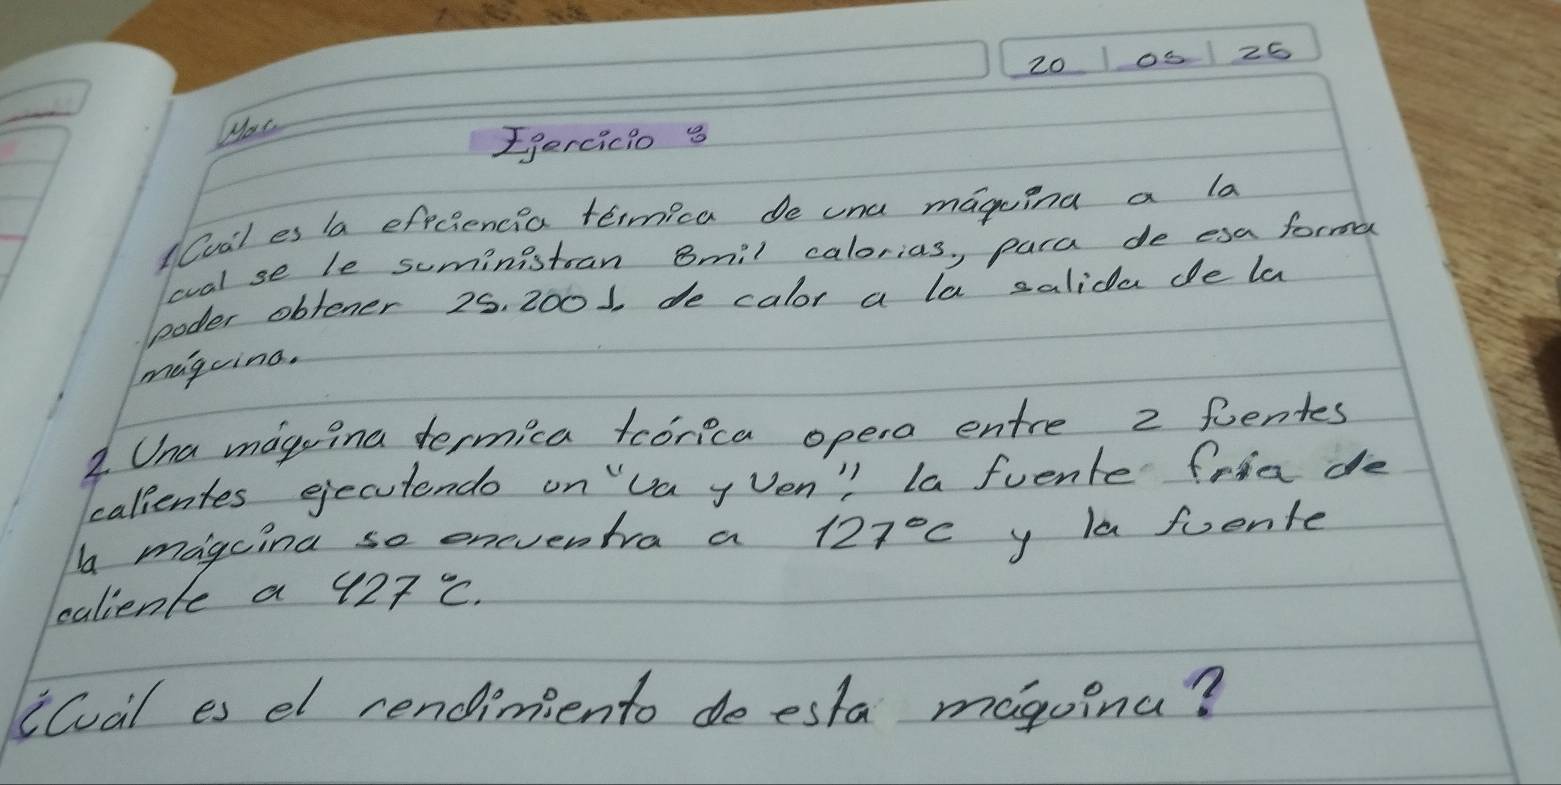 20 | 05 | 25
Ejercicio 3
1 Cuál es la eficiencia térmica de una máquina a la
cual se le suministran 8mil calorias, para de esa forma
poder obtener 25.200 J. de calor a la salida de la
máquina.
2. Una máquina termica teórica opera entre 2 fuentes
calientes ejecutando un "va y ven", la fuente fria de
la máquina se encuentra a 127°C y la fuente
caliente a 427°C.
¿Cuál es el rendimiento de esta máquina?